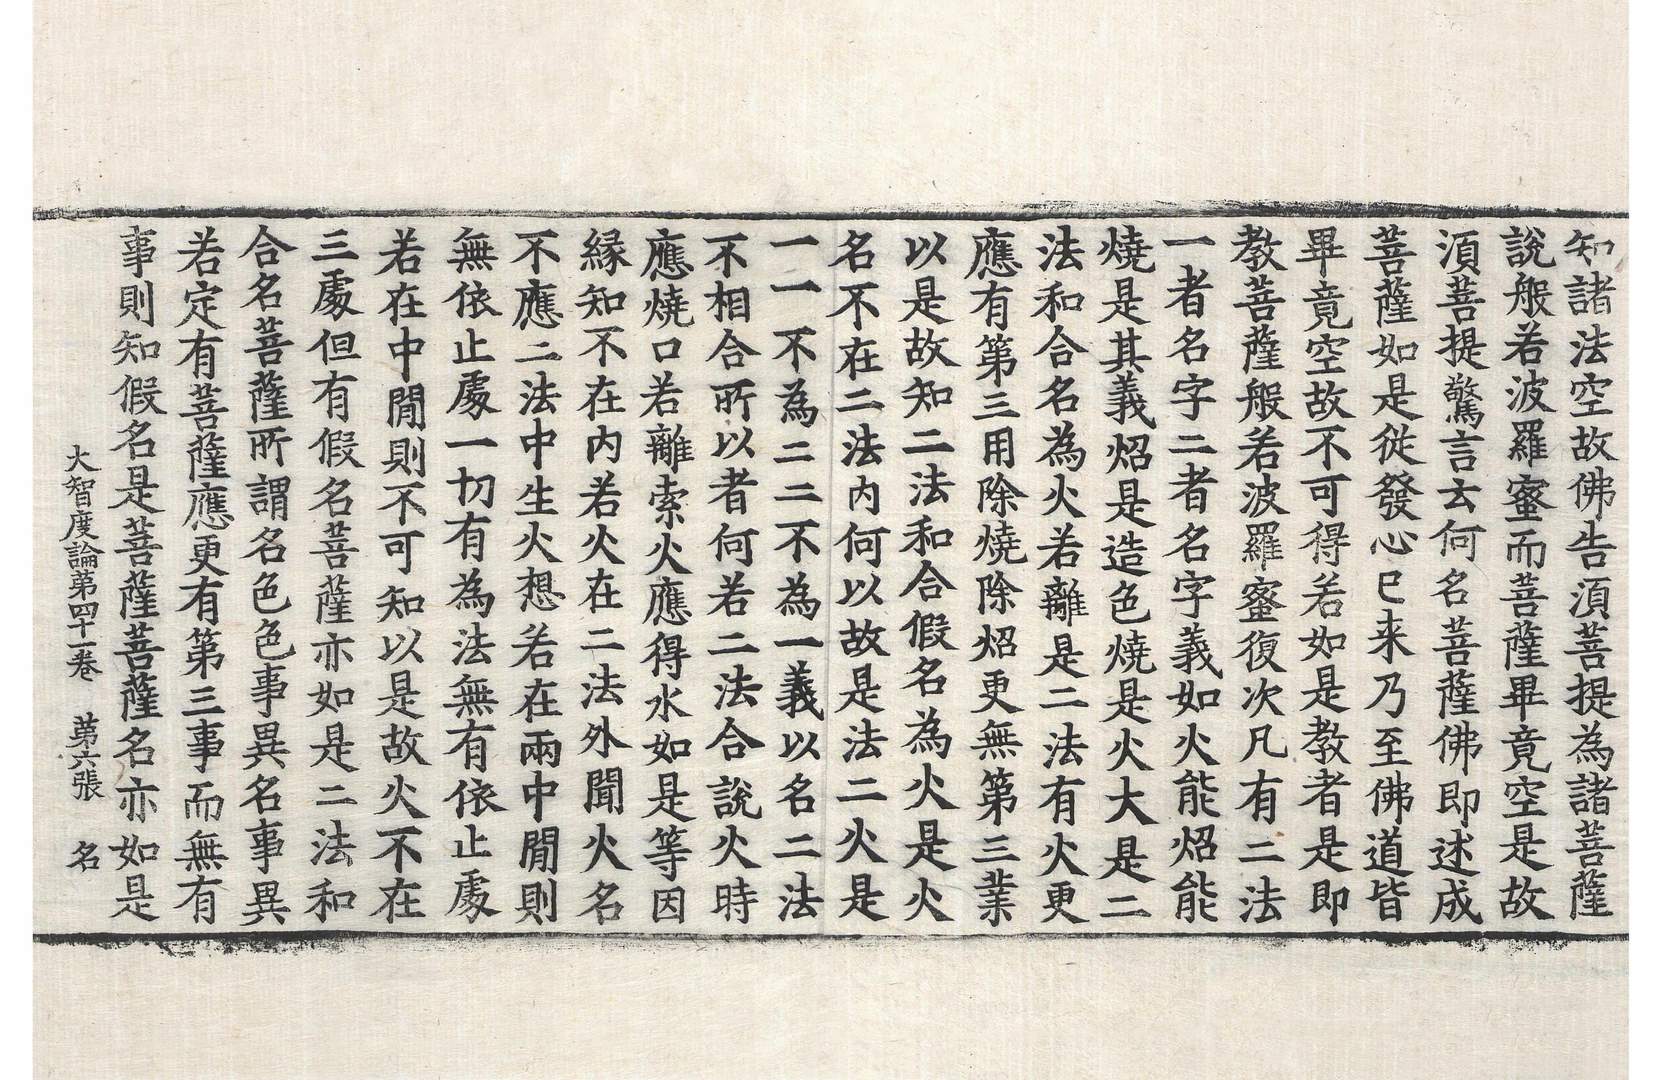 知諸法空故佛告湏菩提為諸菩薩
說般若波羅蜜而菩薩畢竟空是故
湏菩提驚言云何名菩薩佛即述成
菩薩如是從發心已来乃至佛道皆
畢竟空故不可得若如是教者是即
教菩薩般若波羅蜜復次凡有二法
一者名字二者名字義如火能炤能
燒是其義炤是造色燒是火大是二
法和合名為火若離是二法有火更
應有第三用除燒除炤更無第三業
以是故知二法和合假名為火是火
名不在二法內何以故是法二火是
一一不為二二不為一義以名二法
不相合所以者何若二法合說火時
應燒口若離索火應得水如是等因
緣知不在內若火在二法外聞火名
不應二法中生火想若在兩中閒則
無依止處一切有為法無有依止處
若在中閒則不可知以是故火不在
三處但有假名菩薩亦如是二法和
合名菩薩所謂名色色事異名事異
若定有菩薩應更有第三事而無有
事則知假名是菩薩菩薩名亦如是
大智度論第四十一卷　第六張　名